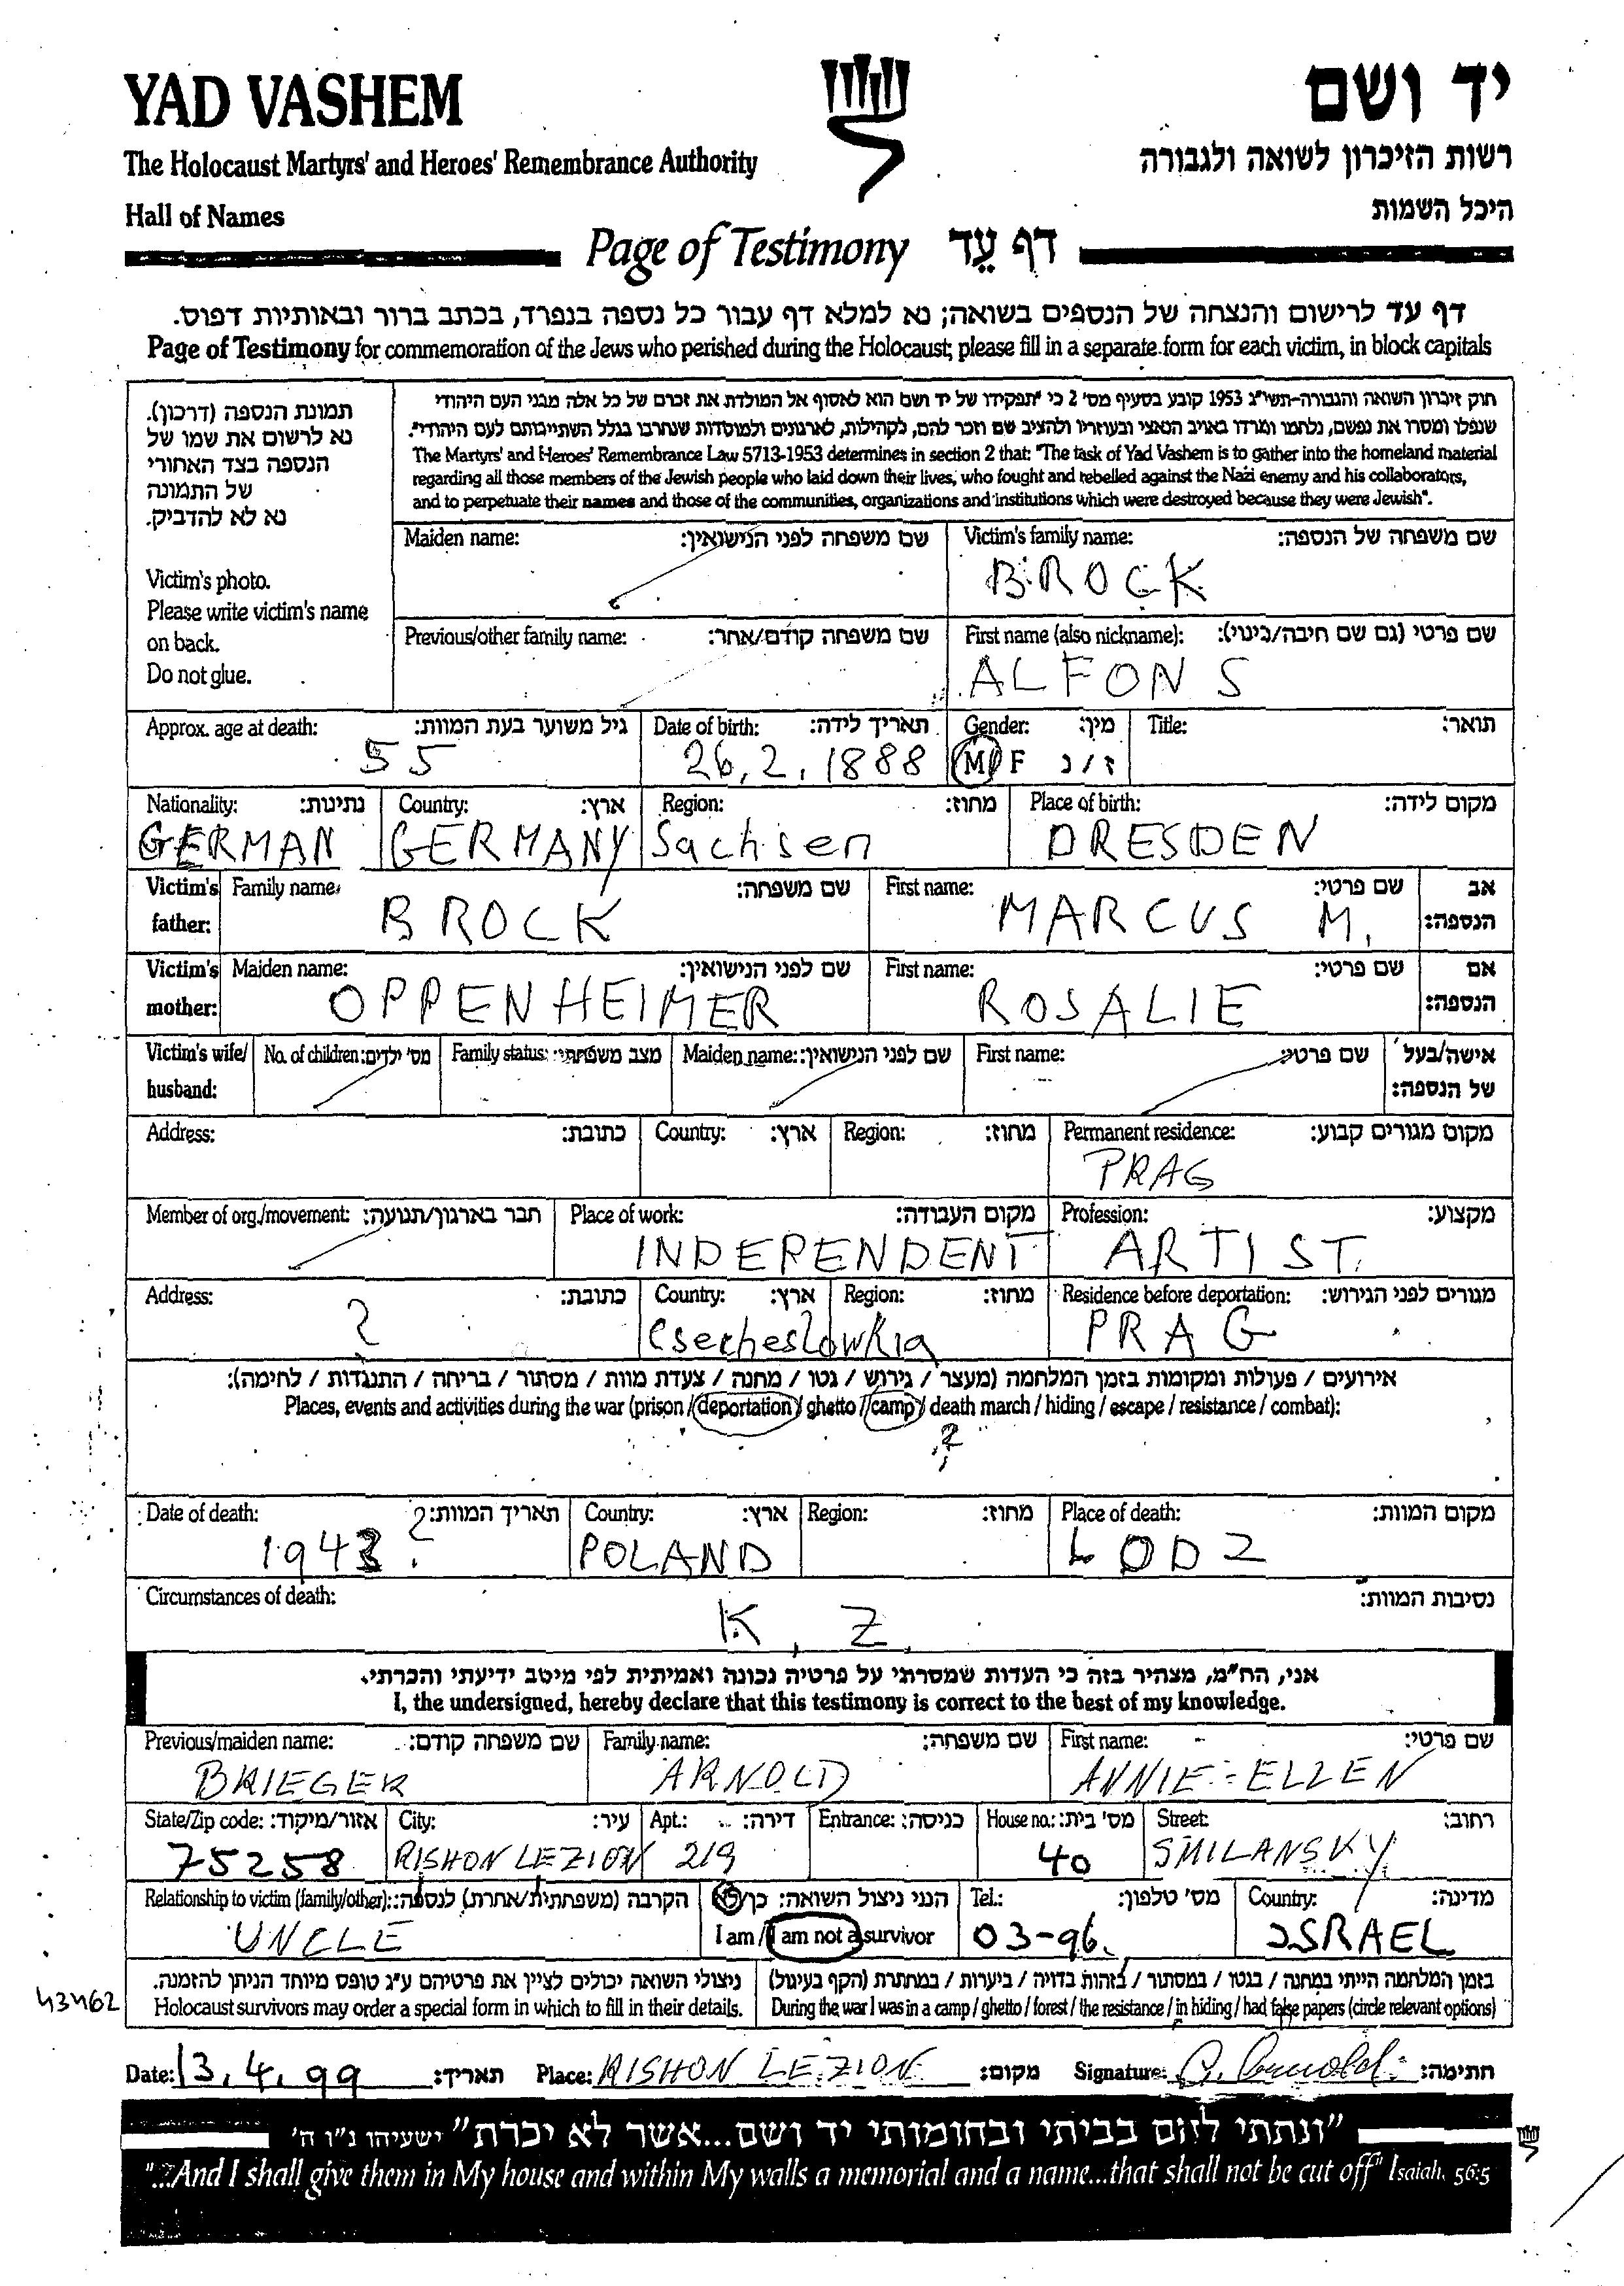 YAD VASHEM
יד ושם
The Holocaust Martyrs' and Heroes' Remembrance Authority
רשות הזיכרון לשואה ולגבורה
Hall of Names
היכל השמות
Page of Testimony דף עֵד
דף עד לרישום והנצחה של הנספים בשואה; נא למלא דף עבור כל נספה בנפרד, בכתב ברור ובאותיות דפוס.
Page of Testimony for commemoration of the Jews who perished during the Holocaust; please fill in a separate form for each victim, in block capitals
תמונת הנספה (דרכון).
נא לרשום את שמו של
הנספה בצד האחורי
של התמונה
נא לא להדביק.
Victim's photo.
Please write victim's name
on back.
Do not glue.
חוק זיכרון השואה והגבורה-תשי"ג 1953 קובע בסעיף מס' 2 כי "תפקידו של יד ושם הוא לאסוף אל המולדת את זכרם של כל אלה מבני העם היהודי
שנפלו ומסרו את נפשם, נלחמו ומרדו באויב הנאצי ובעוזריו ולהציב שם וזכר להם, לקהילות, לארגונים ולמוסדות שנחרבו בגלל השתייכותם לעם היהודי".
The Martyrs' and Heroes' Remembrance Law 5713-1953 determines in section 2 that: "The task of Yad Vashem is to gather into the homeland material
regarding all those members of the Jewish people who laid down their lives, who fought and rebelled against the Nazi enemy and his collaborators,
and to perpetuate their names and those of the communities, organizations and institutions which were destroyed because they were Jewish".
Maiden name: שם משפחה לפני הנישואין: Victim's family name: שם משפחה של הנספה:
BROCK
Previous/other family name: שם משפחה קודם/אחר: First name (also nickname): שם פרטי (גם שם חיבה/כינוי):
ALFONS
Approx. age at death: גיל משוער בעת המוות: Date of birth: תאריך לידה: Gender: מין: Title: תואר:
55 26.2.1888 M/F ז/נ
Nationality: נתינות: Country: ארץ: Region: מחוז: Place of birth: מקום לידה:
GERMAN GERMANY Sachsen DRESDEN
Victim's father: Family name: שם משפחה: First name: שם פרטי: אב הנספה:
BROCK MARCUS M.
Victim's mother: Maiden name: שם לפני הנישואין: First name: שם פרטי: אם הנספה:
OPPENHEIMER ROSALIE
Victim's wife/ husband: No. of children: מס' ילדים: Family status: מצב משפחתי: Maiden name: שם לפני הנישואין: First name: שם פרטי: אישה/בעל של הנספה:
Address: כתובת: Country: ארץ: Region: מחוז: Permanent residence: מקום מגורים קבוע:
PRAG
Member of org./movement: חבר בארגון/תנועה: Place of work: מקום העבודה: Profession: מקצוע:
INDEPENDENT ARTIST.
Address: כתובת: Country: ארץ: Region: מחוז: Residence before deportation: מגורים לפני הגירוש:
? Csecheslowkia PRAG
אירועים / פעולות ומקומות בזמן המלחמה (מעצר / גירוש / גטו / מחנה / צעדת מוות / מסתור / בריחה / התנגדות / לחימה):
Places, events and activities during the war (prison / deportation / ghetto / camp / death march / hiding / escape / resistance / combat):
?
Date of death: תאריך המוות: Country: ארץ: Region: מחוז: Place of death: מקום המוות:
1943? POLAND LODZ
Circumstances of death: נסיבות המוות:
K.Z.
אני, הח"מ, מצהיר בזה כי העדות שמסרתי על פרטיה נכונה ואמיתית לפי מיטב ידיעתי והכרתי.
I, the undersigned, hereby declare that this testimony is correct to the best of my knowledge.
Previous/maiden name: שם משפחה קודם: Family name: שם משפחה: First name: שם פרטי:
BRIEGER ARNOLD ANNIE-ELLEN
State/Zip code: אזור/מיקוד: City: עיר: Apt.: דירה: Entrance: כניסה: House no.: מס' בית: Street: רחוב:
75258 RISHON LEZION 219 40 SMILANSKY
Relationship to victim (family/other): הקרבה (משפחתית/אחרת) לנספה: הנני ניצול השואה: כן/לא Tel.: מס' טלפון: Country: מדינה:
UNCLE I am / I am not a survivor 03-96. ISRAEL
ניצולי השואה יכולים לציין את פרטיהם ע"ג טופס מיוחד הניתן להזמנה. בזמן המלחמה הייתי במחנה / בגטו / במסתור / בזהות בדויה / ביערות / במחתרת (הקף בעיגול)
43462 Holocaust survivors may order a special form in which to fill in their details. During the war I was in a camp / ghetto / forest / the resistance / in hiding / had false papers (circle relevant options)
Date: 13.4.99 תאריך: Place: RISHON LEZION מקום: Signature: A. Arnold חתימה:
"ונתתי להם בביתי ובחומותי יד ושם...אשר לא יכרת" ישעיהו נ"ו ה'
"...And I shall give them in My house and within My walls a memorial and a name...that shall not be cut off" Isaiah, 56:5